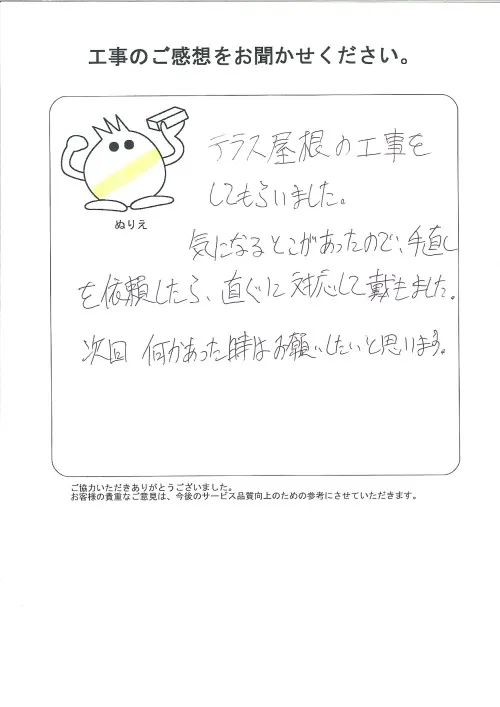 工事のご感想をお聞かせください。
テラス屋根の工事を
してもらいました。
ぬりえ
気になるとこがあったので、手直し
を依頼したら、直ぐに対応して戴きました。
次回 何かあった時はお願いしたいと思います。
ご協力いただきありがとうございました。
お客様の貴重なご意見は、今後のサービス品質向上のための参考にさせていただきます。